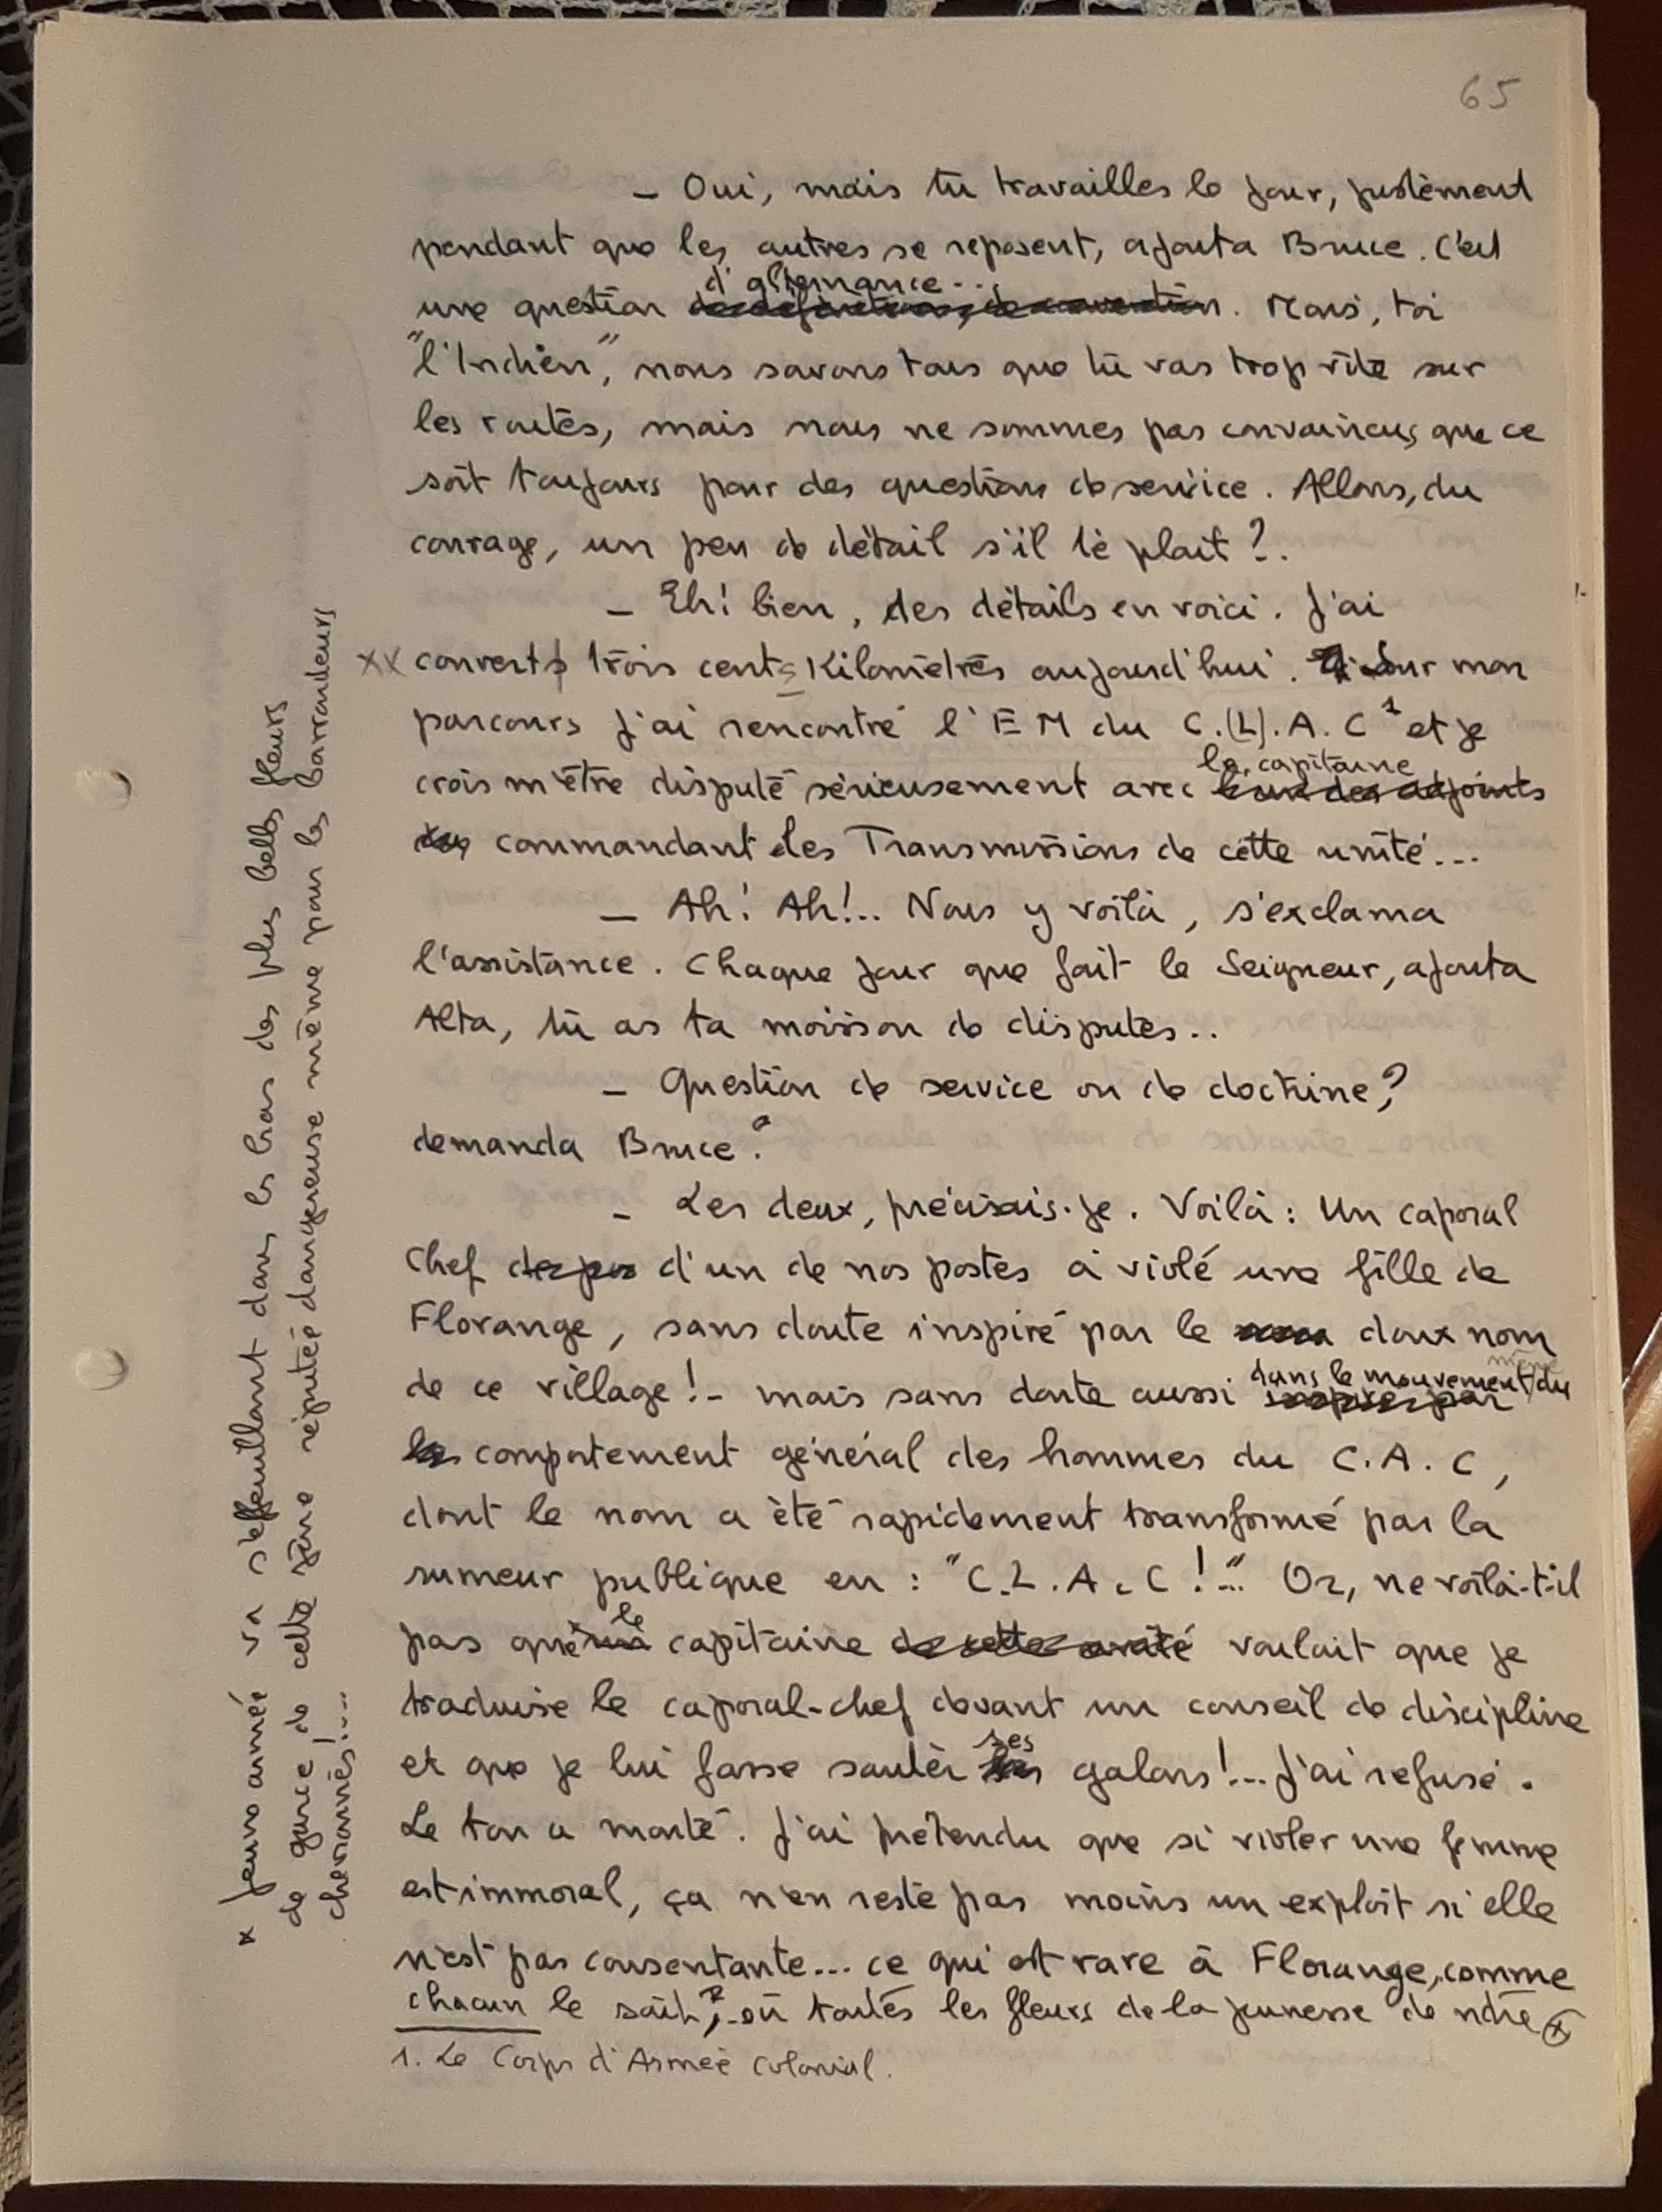 65
— Oui, mais tu travailles le jour, justement
pendant que les autres se reposent, ajouta Bruce. C'est
une question d'alternance... Mais, toi
"l'Indien", nous savons tous que tu vas trop vite sur
les routes, mais nous ne sommes pas convaincus que ce
soit toujours pour des questions de service. Allons, du
courage, un peu de détail s'il te plait ?.
— Eh! bien, des détails en voici. J'ai
xx couverts trois cents Kilomètres aujourd'hui. Sur mon
parcours j'ai rencontré l'EM du C.(L).A.C¹ et je
crois m'être disputé sérieusement avec le capitaine
commandant les Transmissions de cette unité...
— Ah! Ah!.. Nous y voilà, s'exclama
l'assistance. Chaque jour que fait le Seigneur, ajouta
Alta, tu as ta moisson de disputes..
— Question de service ou de doctrine?
demanda Bruce.
— Les deux, précisais-je. Voilà : Un caporal
Chef d'un de nos postes a violé une fille de
Florange, sans doute inspiré par le doux nom
de ce village!- mais sans doute aussi dans le mouvement même du
comportement général des hommes du C.A.C,
dont le nom a été rapidement transformé par la
rumeur publique en : "C.L.A.C!..." Or, ne voilà-t-il
pas que le capitaine voulait que je
traduise le caporal-chef devant un conseil de discipline
et que je lui fasse sauter ses galons!... J'ai refusé.
Le ton a monté. J'ai prétendu que si violer une femme
est immoral, ça n'en reste pas moins un exploit si elle
n'est pas consentante... ce qui est rare à Florange, comme
chacun le sait, où toutes les fleurs de la jeunesse de notre x
1. Le Corps d'Armée Colonial.
x jeune armée va s'effeuillant dans les bras des plus belles fleurs
de garce de cette zone réputée dangereuse même pour les barroudeurs
chevronnés!...